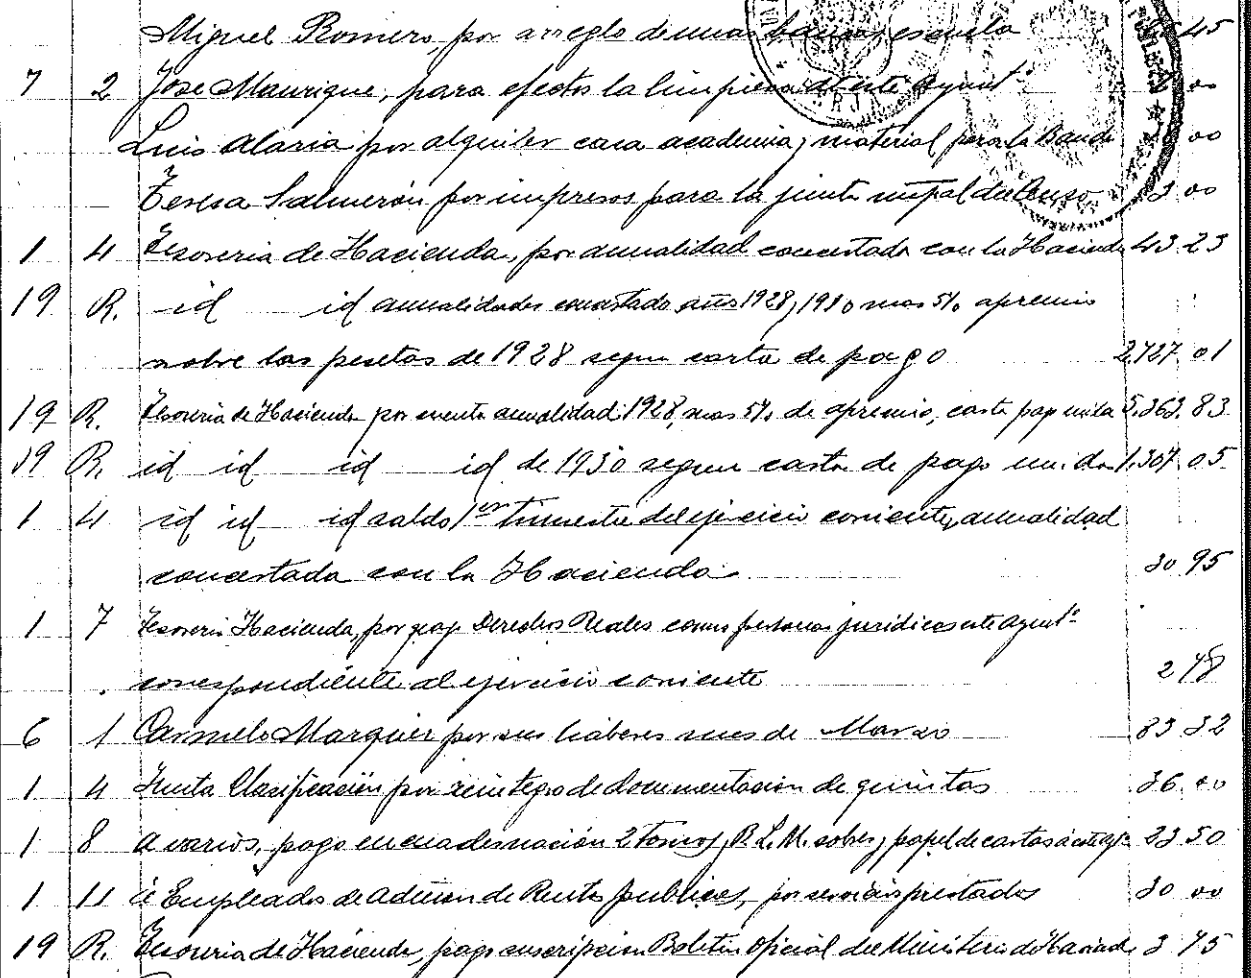 Miguel Romero, por arreglo de unas bancas escuela 45
7 2 Jose Manrique, para efectos la limpieza de este Ayunt.º 00
Luis Alaria por alquiler casa academia y material para la Banda 00
Teresa Salmerón por impresos para la junta mnpal del Censo 3 00
1 4 Tesoreria de Hacienda, por anualidad concertada con la Hacienda 43 23
19 R. id id anualidades concertado años 1928 y 1930 mas 5% apremio
sobre las pesetas de 1928 segun carta de pago 2727 01
19 R. Tesoreria de Hacienda por cuenta anualidad 1928, mas 5% de apremio, carta pago unida 5.363.83
19 R. id id id id de 1930 segun carta de pago unida 1.307.05
1 4 id id id saldo 1er trimestre del ejercicio corriente, anualidad
concertada con la Hacienda 30 95
1 7 Tesoreria Hacienda, por pago Derechos Reales como personas juridicas este ayunt.º
correspondiente al ejercicio corriente 2 48
6 1 Carmelo Marquez por sus haberes mes de Marzo 83 32
1 4 Junta Clasificación por reintegro de documentacion de quintas 36 00
1 8 a varios, pago encuadernación 2 tomos, B.L.M. sobres y papel de cartas á este ay.º 23 50
1 11 á Empleados de admon de Rentas publicas, por servicios prestados 30 00
19 R. Tesoreria de Hacienda, pago suscripcion Boletin Oficial del Ministerio de Haciend. 3 75